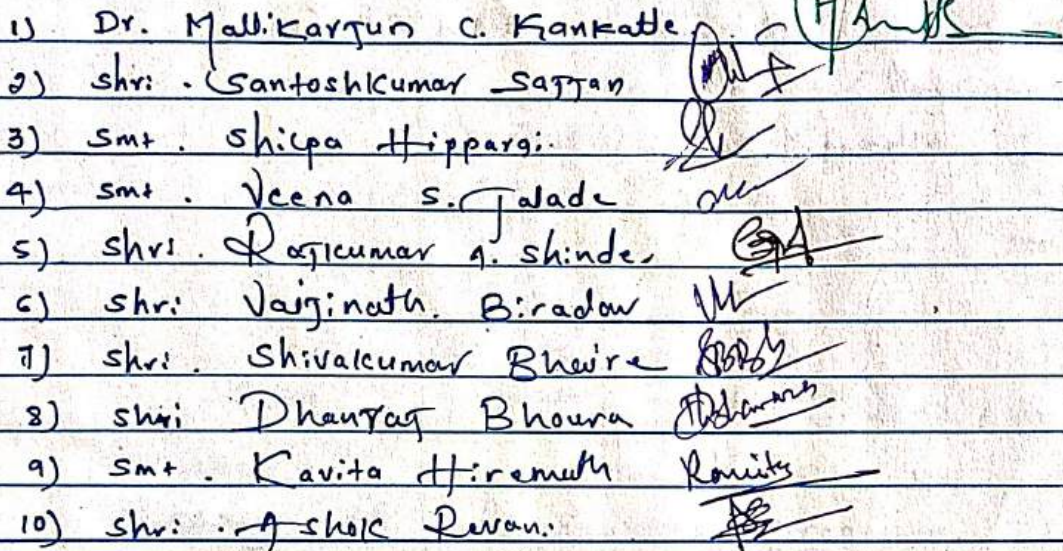 1) Dr. Mallikarjun C. Kankatte.
2) Shri. Santoshkumar Sajjan
3) Smt. Shilpa Hippargi.
4) Smt. Veena S. Jalade
5) Shri. Rajkumar A. Shinde.
6) Shri Vaijinath. Biradar
7) Shri. Shivakumar Bhaire
8) Shri Dhanraj Bhoura
9) Smt. Kavita Hiremath
10) Shri. Ashok Revan.